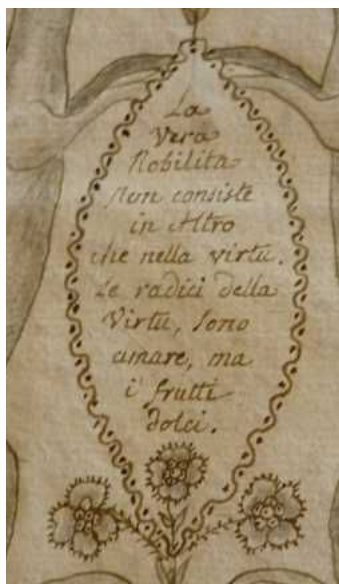 La
Vera
Nobilita
Non consiste
in Altro
che nella virtù.
Le radici della
Virtù, sono
amare, ma
i frutti
dolci.